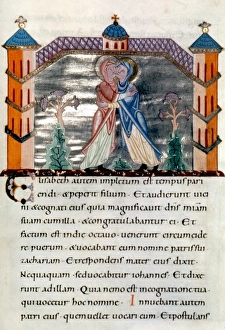 Elisabeth autem impletum est tempus pari
endi & peperit filium. Et audierunt uici
ni & cognati eius quia magnificauit dns miam
suam cum illa. & congratulabantur ei. Et
factum est indie octauo. uenerunt circumcide
re puerum. & uocabant eum nomine patris sui
zachariam. Et respondens mater eius dixit.
Nequaquam. sed uocabitur iohannes. Et dixe
runt ad illam. Quia nemo est incognatione tua
qui uocetur hoc nomine. Innuebant autem
patri eius quem uellet uocari eum. Et postulans